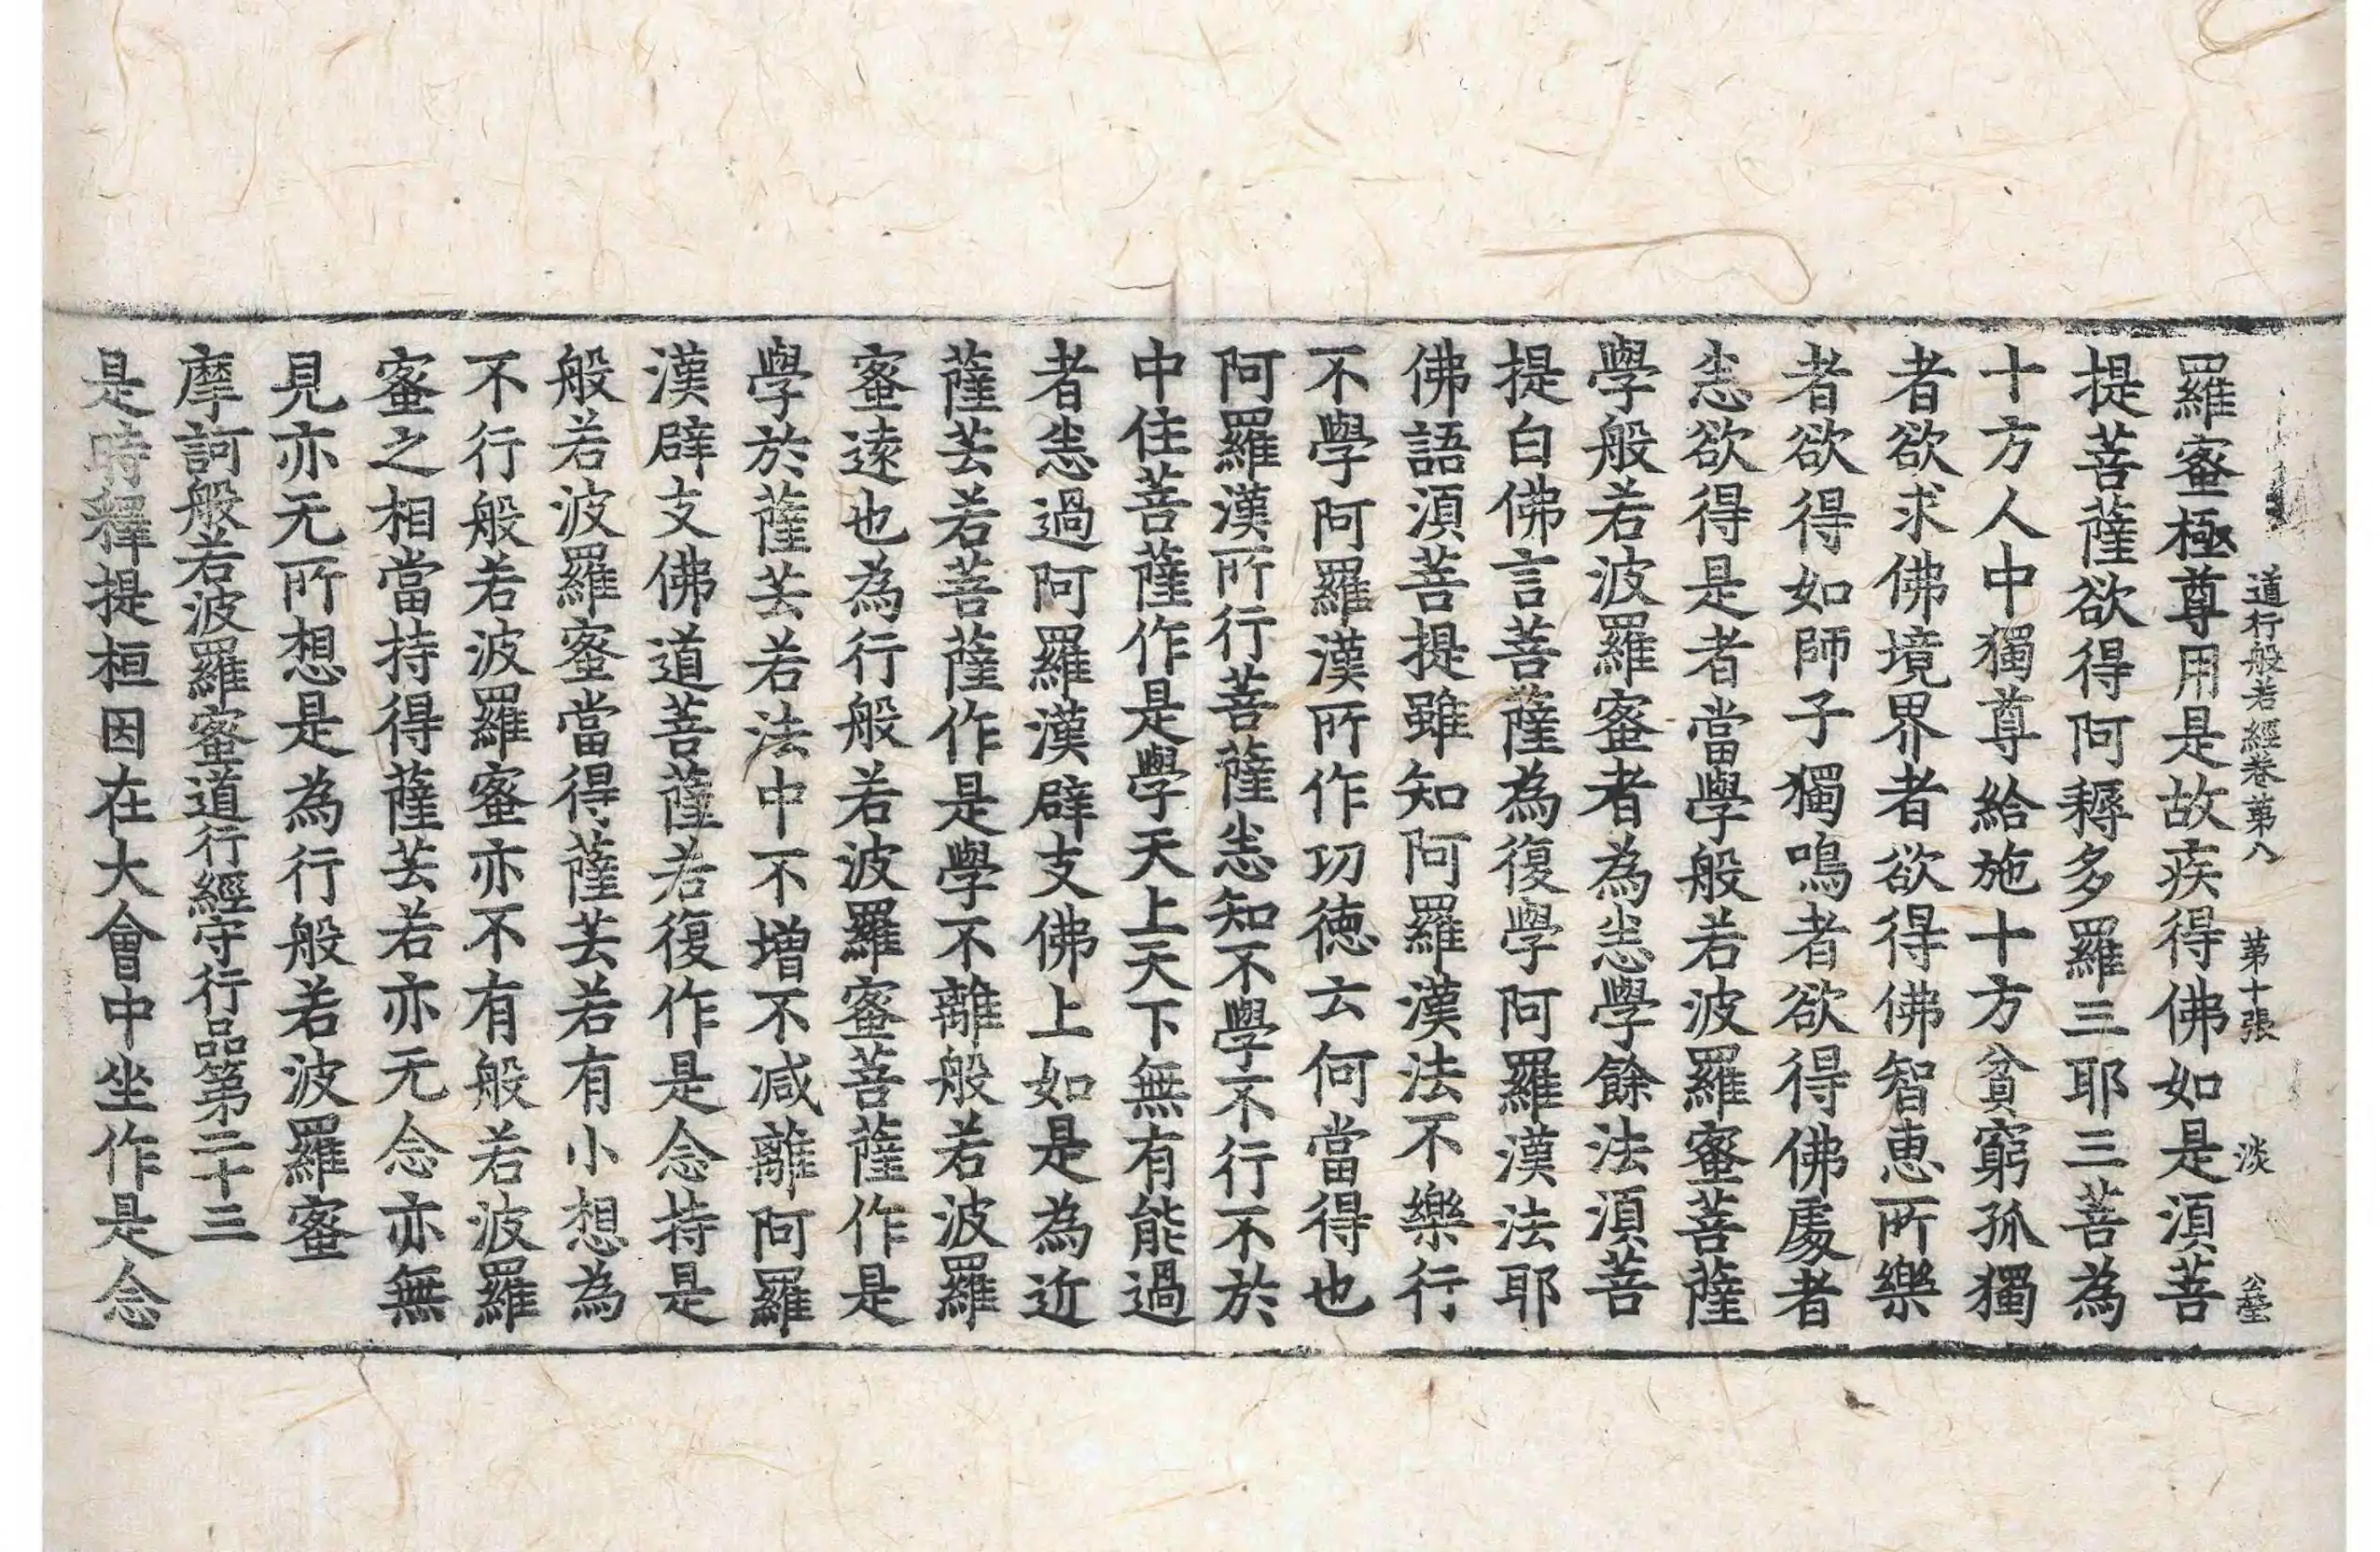 道行般若經卷第八 第十張 淡
羅蜜極尊用是故疾得佛如是湏菩
提菩薩欲得阿耨多羅三耶三菩為
十方人中獨尊給施十方貧窮孤獨
者欲求佛境界者欲得佛智恵所樂
者欲得如師子獨鳴者欲得佛處者
悉欲得是者當學般若波羅蜜菩薩
學般若波羅蜜者為悉學餘法湏菩
提白佛言菩薩為復學阿羅漢法耶
佛語湏菩提雖知阿羅漢法不樂行
不學阿羅漢所作功德云何當得也
阿羅漢所行菩薩悉知不學不行不於
中住菩薩作是學天上天下無有能過
者悉過阿羅漢辟支佛上如是為近
薩芸若菩薩作是學不離般若波羅
蜜遠也為行般若波羅蜜菩薩作是
學於薩芸若法中不增不减離阿羅
漢辟支佛道菩薩若復作是念持是
般若波羅蜜當得薩芸若有小想為
不行般若波羅蜜亦不有般若波羅
蜜之相當持得薩芸若亦无念亦無
見亦无所想是為行般若波羅蜜
摩訶般若波羅蜜道行經守行品第二十三
是時釋提桓因在大會中坐作是念